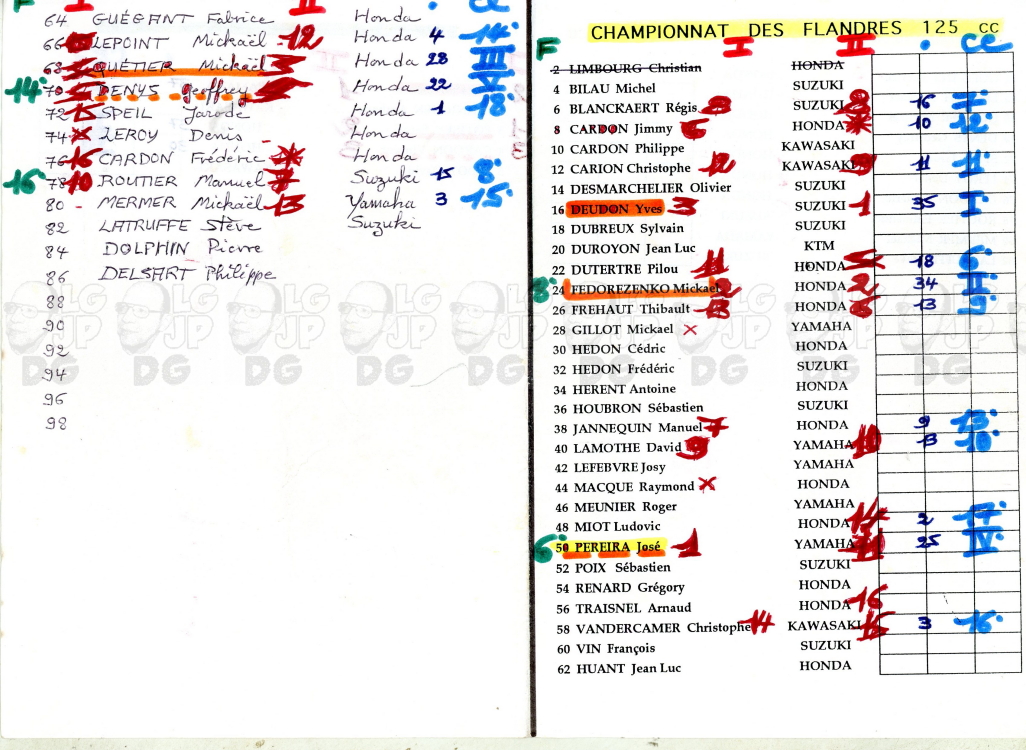 F I II . ce
64 GUÉGANT Fabrice Honda
66 LEPOINT Mickaël 12 Honda 4 14°
68 QUÉTIER Mickaël Honda 28 III
14° 70 DENYS Geoffrey Honda 22 V
72 15 SPEIL Jarode Honda 1 18°
74 x LEROY Denis Honda
76 16 CARDON Frédéric Honda
16° 78 10 ROUTIER Manuel 7 Suzuki 15 8°
80 - MERMER Mickaël 13 Yamaha 3 15°
82 LATRUFFE Stève Suzuki
84 DOLPHIN Pierre
86 DELSART Philippe
88
90
92
94
96
98
CHAMPIONNAT DES FLANDRES 125 cc
F I II . ce
2 LIMBOURG Christian HONDA
4 BILAU Michel SUZUKI
6 BLANCKAERT Régis 8 SUZUKI 8 16 7°
8 CARDON Jimmy 6 HONDA 10 12°
10 CARDON Philippe KAWASAKI
12 CARION Christophe 12 KAWASAKI 9 11 11°
14 DESMARCHELIER Olivier SUZUKI
16 DEUDON Yves 3 SUZUKI 1 35 I
18 DUBREUX Sylvain SUZUKI
20 DUROYON Jean Luc KTM
22 DUTERTRE Pilou 11 HONDA 5 18 6°
8° 24 FEDOREZENKO Mickael 2 HONDA 2 34 II
26 FREHAUT Thibault 13 HONDA 6 13 9°
28 GILLOT Mickael x YAMAHA
30 HEDON Cédric HONDA
32 HEDON Frédéric SUZUKI
34 HERENT Antoine HONDA
36 HOUBRON Sébastien SUZUKI
38 JANNEQUIN Manuel 7 HONDA 9 13°
40 LAMOTHE David 9 YAMAHA 10 13 10°
42 LEFEBVRE Josy YAMAHA
44 MACQUE Raymond x HONDA
46 MEUNIER Roger YAMAHA
48 MIOT Ludovic HONDA 14 2 17°
6° 50 PEREIRA José 1 YAMAHA 25 IV
52 POIX Sébastien SUZUKI
54 RENARD Grégory HONDA
56 TRAISNEL Arnaud HONDA 16
58 VANDERCAMER Christophe 14 KAWASAKI 15 3 16°
60 VIN François SUZUKI
62 HUANT Jean Luc HONDA
LG JP DG